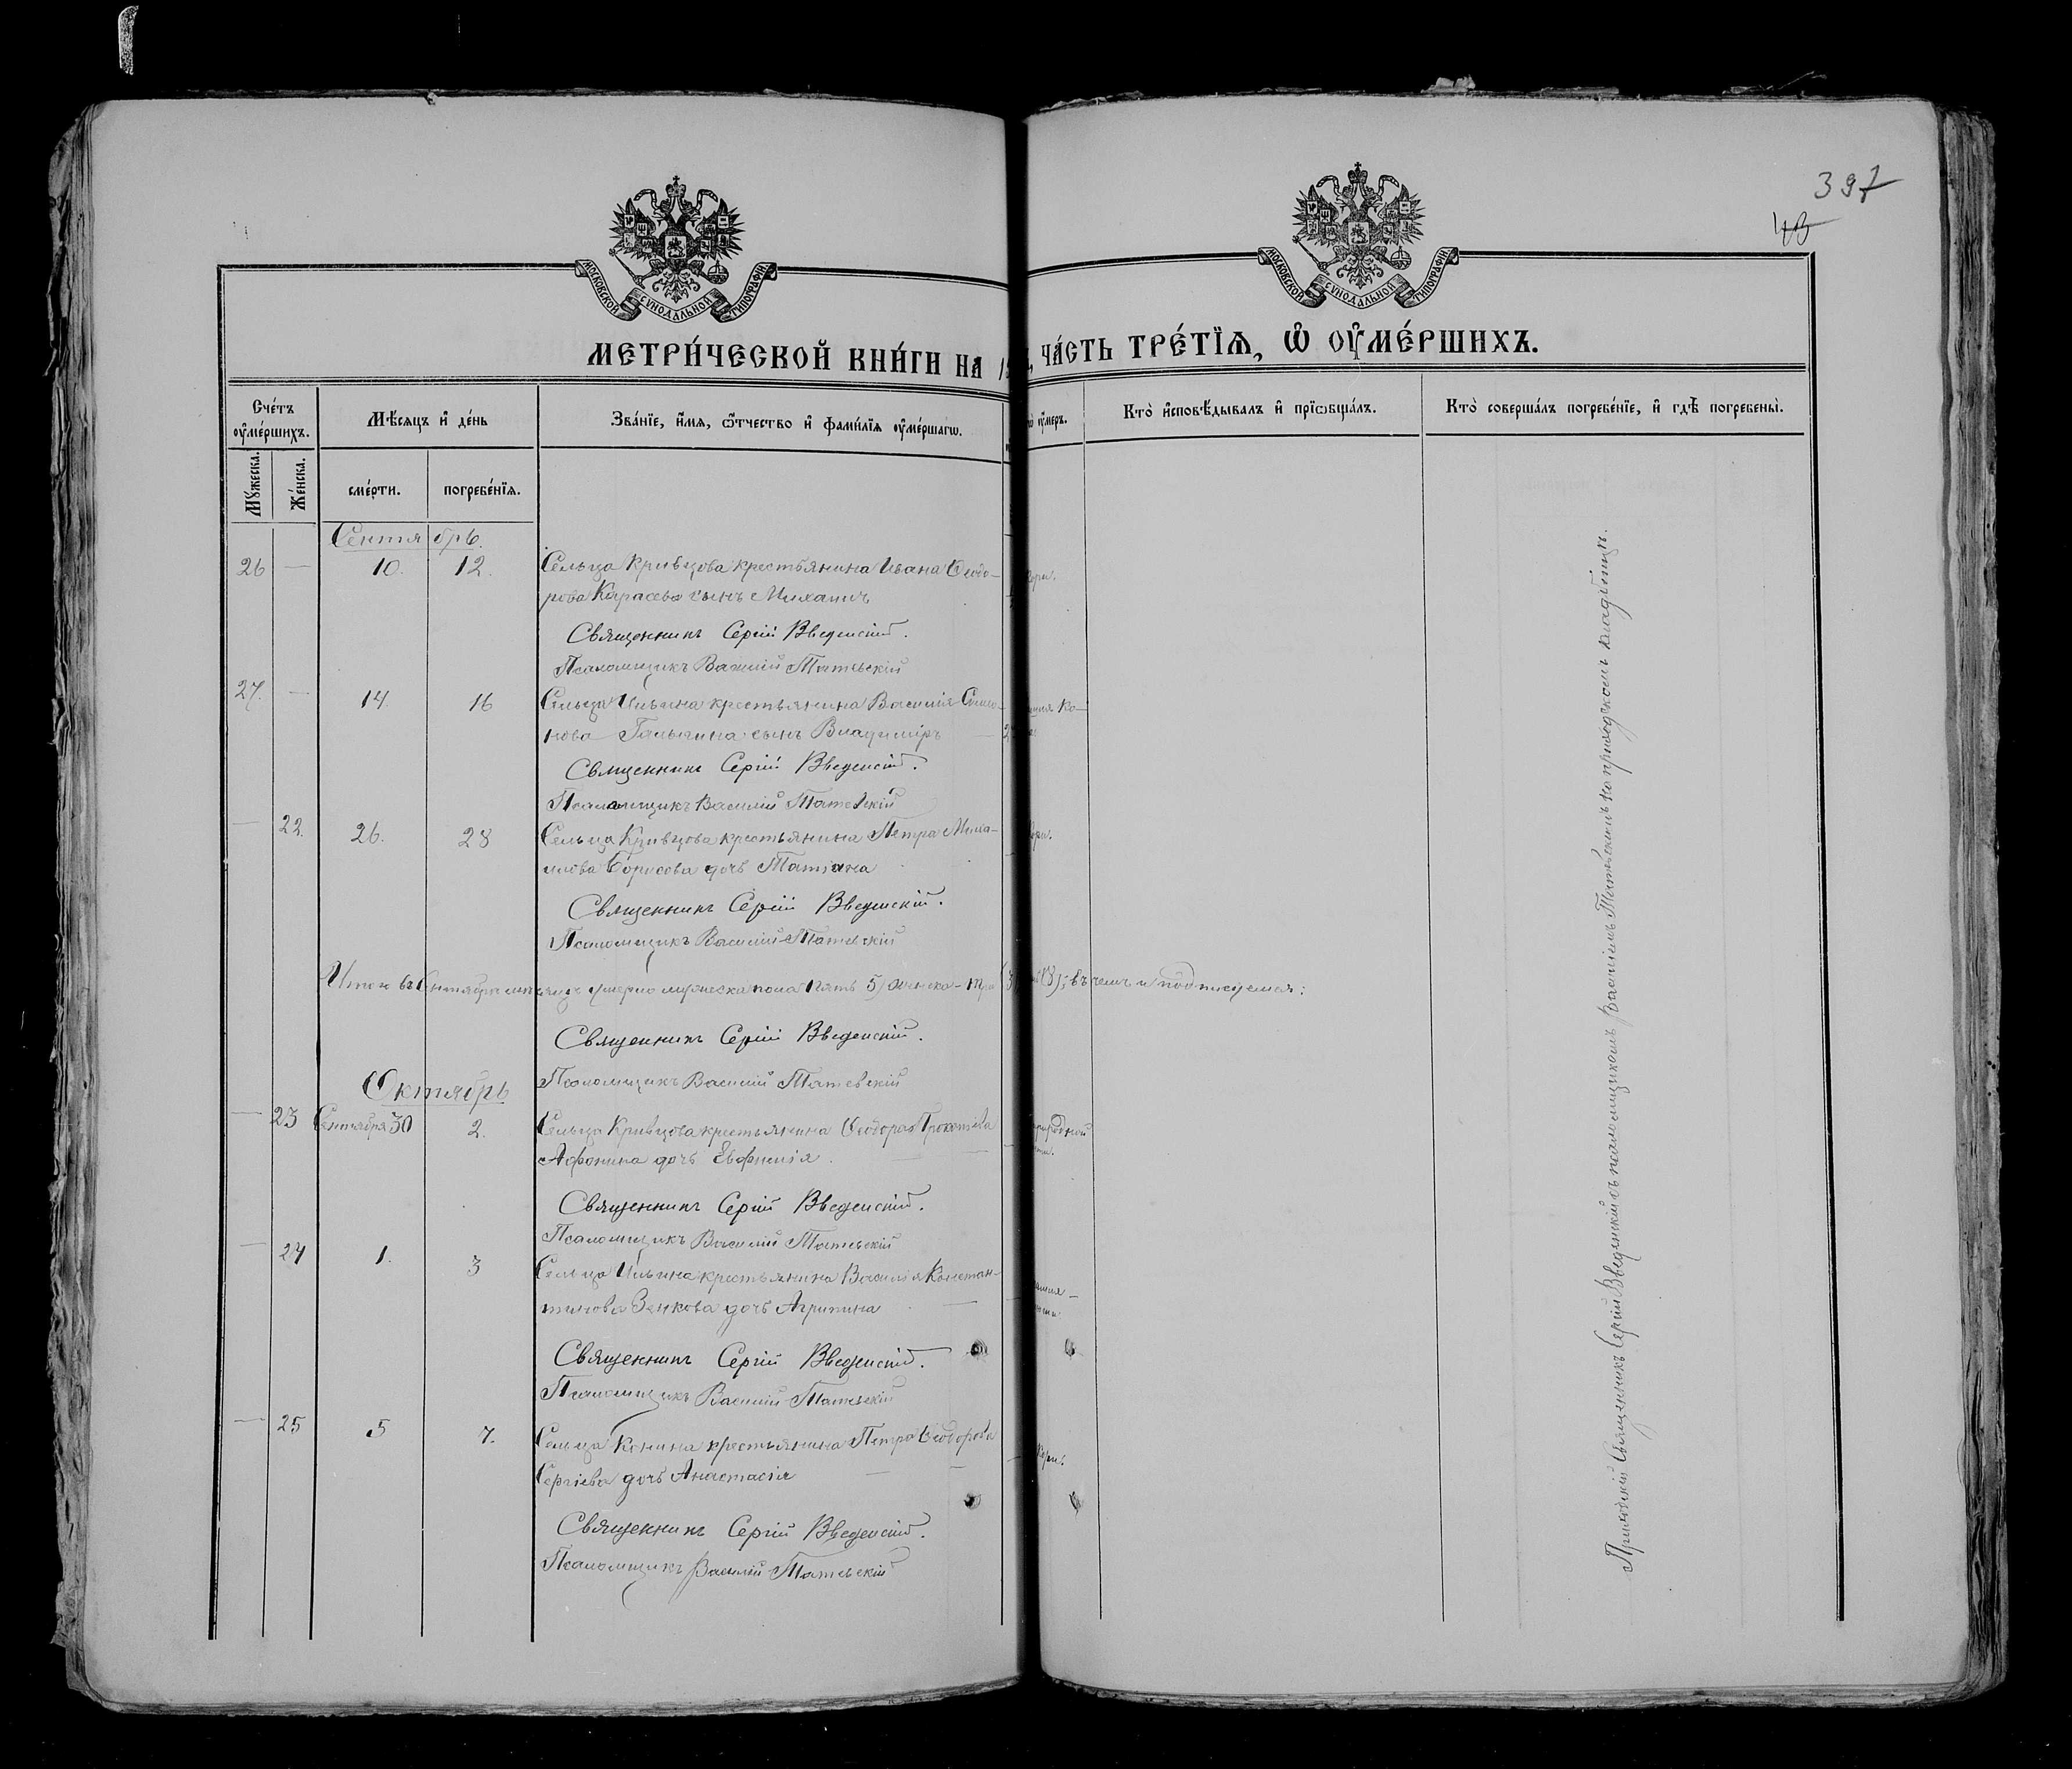 397
43
МОСКОВСКОЙ СѴНОДАЛЬНОЙ ТИПОГРАФІИ.
МОСКОВСКОЙ СѴНОДАЛЬНОЙ ТИПОГРАФІИ.
МЕТРИ́ЧЕСКОЙ КНИ́ГИ НА 1
ЧА́СТЬ ТРЕ́ТЇѦ, Ѡ҆ ОУ҆МЕ́РШИХЪ.
Сче́тъ оу҆ме́ршихъ.
Мꙋ́жеска.
Же́нска.
Мѣ́сѧцъ и҆ де́нь
сме́рти.
погребе́нїѧ.
Зва́нїе, и҆́мѧ, ѻ҆́тчество и҆ фами́лїѧ оу҆ме́ршагѡ.
оу҆́меръ.
Кто̀ и҆сповѣ́дывалъ и҆ прїѡбща́лъ.
Кто̀ соверша́лъ погребе́нїе, и҆ гдѣ̀ погребены̀.
Сентябрь.
26 — 10. 12. Сельца Кривцова крестьянина Ивана Ѳеодо-
рова Карасева сынъ Михаилъ
Священникъ Сергій Введенскій.
Псаломщикъ Василій Татевскій
27. — 14. 16 Сельца Ильина крестьянина Василія Симо-
нова Галыгина сынъ Владиміръ —
Священникъ Сергій Введенскій.
Псаломщикъ Василій Татевскій
— 22. 26. 28 Сельца Кривцова крестьянина Петра Миха-
илова Борисова дочь Татіана
Священникъ Сергій Введенскій.
Псаломщикъ Василій Татевскій
Итого въ Сентябрѣ мѣсяцѣ умерло мужеска пола пять 5) женска – три (3 (8), въ чемъ и подписуемся:
Священникъ Сергій Введенскій.
Псаломщикъ Василій Татевскій
Октябрь
— 23 Сентября 30 2. Сельца Кривцова крестьянина Ѳеодора Прокопіева
Афонина дочь Евфимія.
Священникъ Сергій Введенскій.
Псаломщикъ Василій Татевскій
— 24 1. 3 Сельца Ильина крестьянина Василія Констан-
тинова Зенкова дочь Агрипина
Священникъ Сергій Введенскій.
Псаломщикъ Василій Татевскій
— 25 5 7. Сельца Конина крестьянина Петра Ѳеодорова
Сергіева дочь Анастасія
Священникъ Сергій Введенскій.
Псаломщикъ Василій Татевскій
Приходскій Священникъ Сергій Введенскій съ псаломщикомъ Василіемъ Татевскимъ на приходскомъ кладбищѣ.